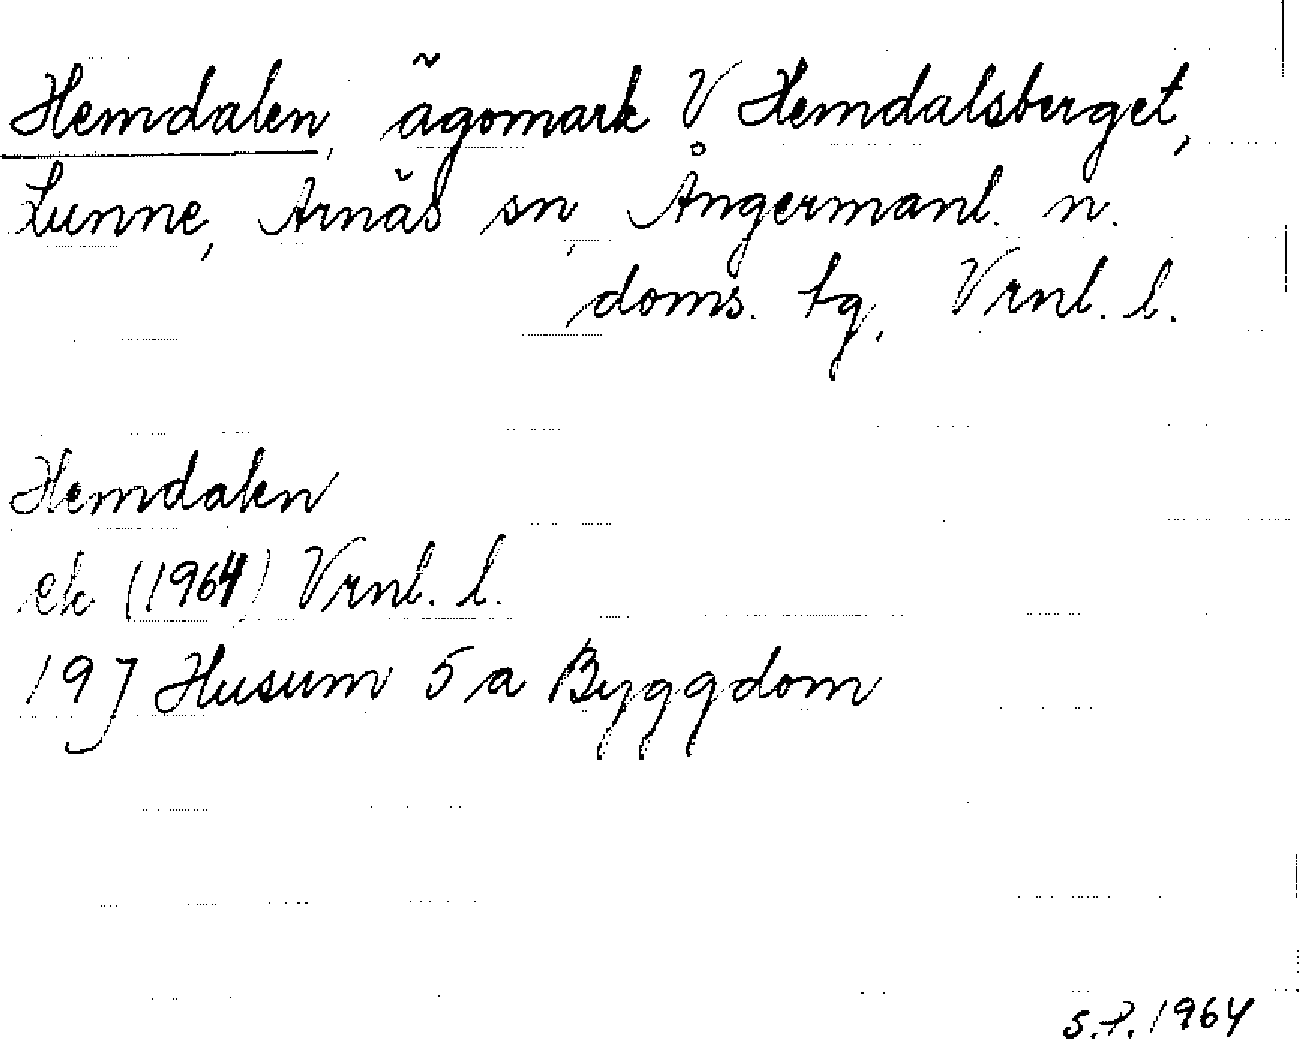 Hemdalen, ägomark V Hemdalsberget,
Lunne, Arnäs sn, Ångermanl. n.
doms. tg, Vrnl. l.
Hemdalen
ek (1964) Vrnl. l.
19J Husum 5 a Byggdom
S.P. 1964